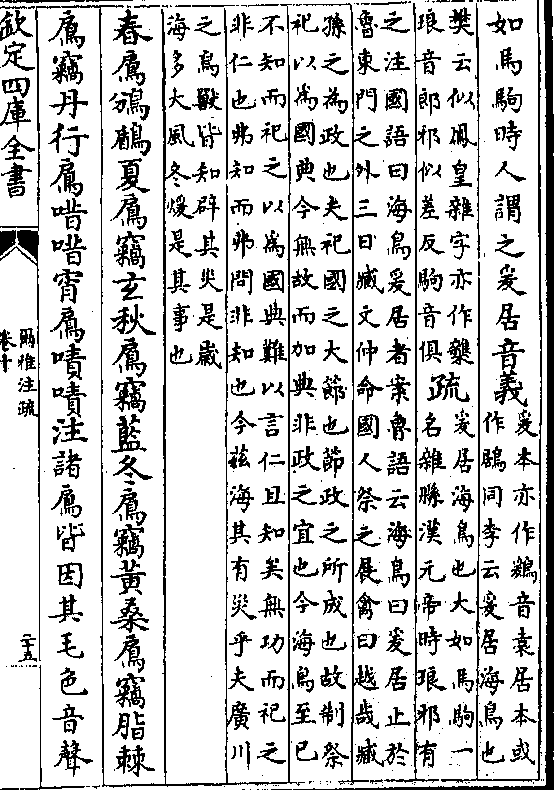 如馬駒時人謂之爰居音義
爰本亦作鶢音袁居本或
作鶋同李云爰居海鳥也
樊云似鳯皇雜字亦作
琅音郎邪似差反駒音俱
疏
爰居海鳥也大如馬駒一
名雜縣漢元帝時琅邪有
之注國語曰海鳥爰居者案魯語云海鳥曰爰居止於
魯東門之外三日臧文仲命國人祭之展禽曰越哉臧
孫之為政也夫祀國之大節也節政之所成也故制祭
祀以為國典今無故而加典非政之宜也今海鳥至已
不知而祀之以為國典難以言仁且知矣無功而祀之
非仁也弗知而弗問非知也今兹海其有災乎夫廣川
之鳥獸皆知辟其災是歲
海多大風冬煖是其事也
春鳸鳻鶞夏鳸竊玄秋鳸竊藍冬鳸竊黄桑鳸竊脂棘
鳸竊丹行鳸唶唶宵鳸嘖嘖注諸鳸皆因其毛色音聲
欽定四庫全書
爾雅注疏
卷十
二十五